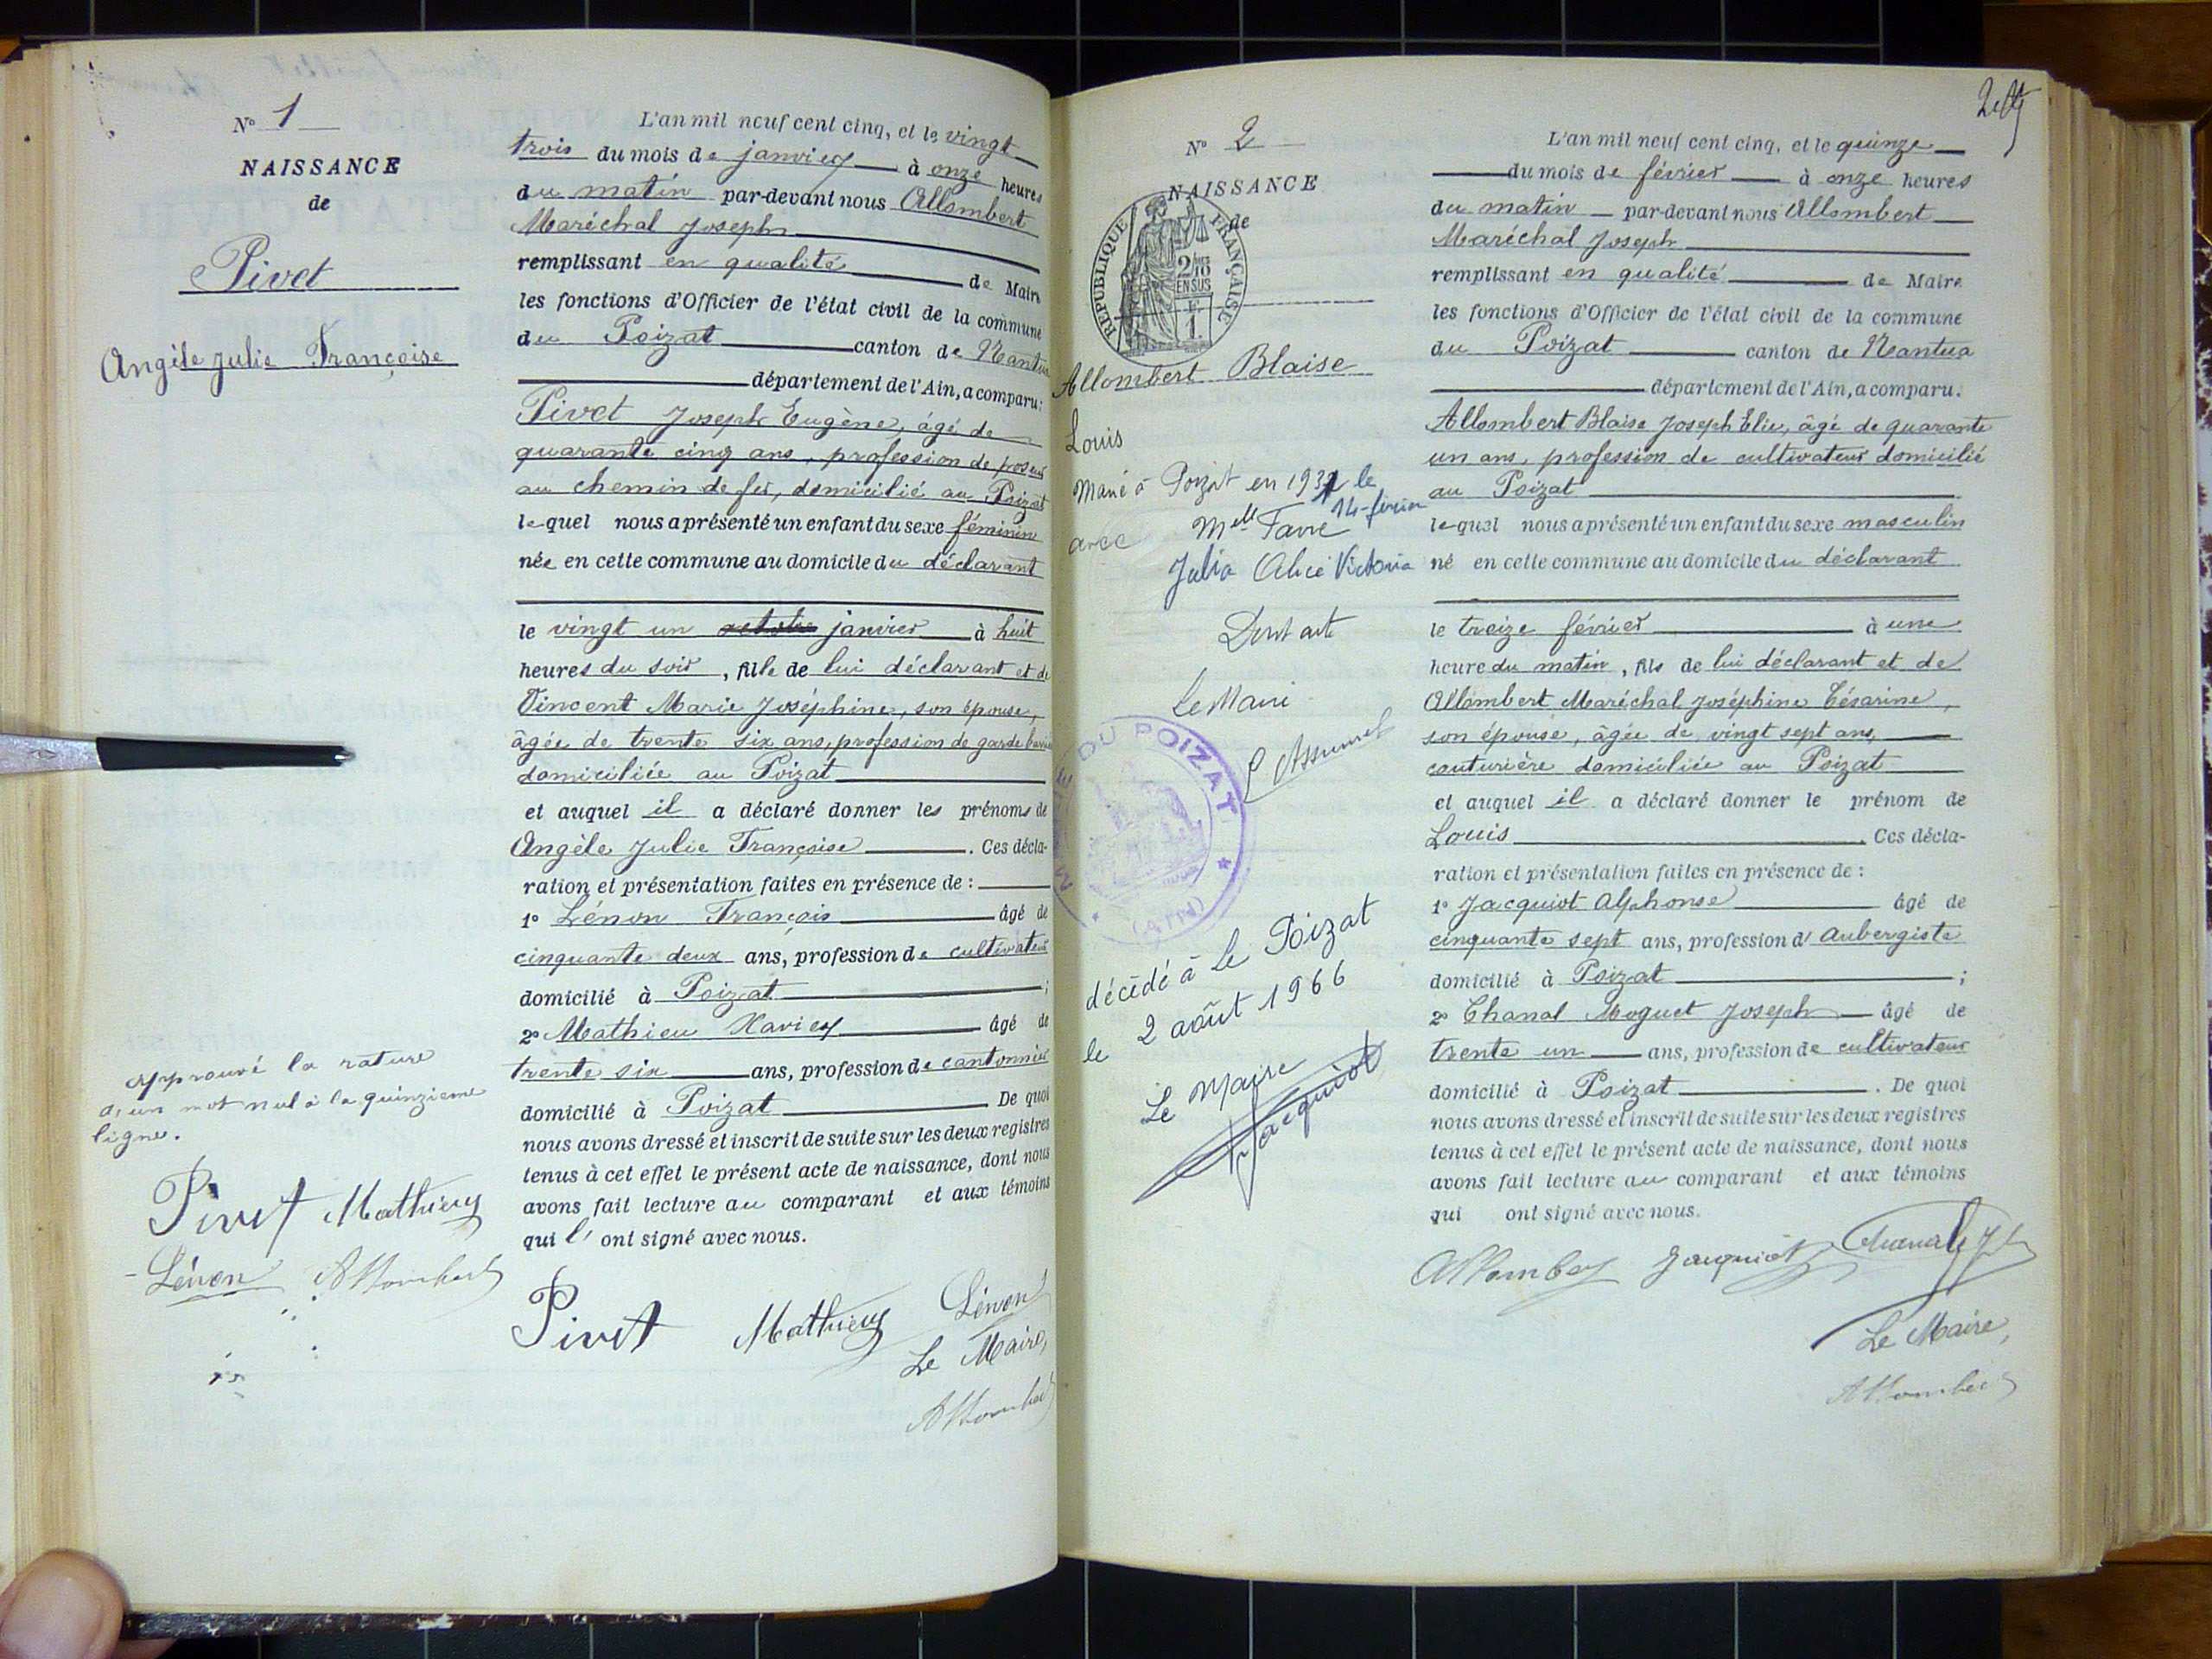 N° 1
NAISSANCE
de
Pivet
Angèle Julie Françoise
L'an mil neuf cent cinq, et le vingt
trois du mois de janvier à onze heures
du matin par-devant nous Allombert
Maréchal Joseph
remplissant en qualité de Maire
les fonctions d'Officier de l'état civil de la commune
du Poizat canton de Nantua
département de l'Ain, a comparu:
Pivet Joseph Eugène, âgé de
quarante cinq ans, profession de poseur
au chemin de fer, domicilié au Poizat
lequel nous a présenté un enfant du sexe féminin
née en cette commune au domicile du déclarant
le vingt un octobre janvier à huit
heures du soir, fille de lui déclarant et de
Vincent Marie Joséphine, son épouse,
âgée de trente six ans, profession de garde
domiciliée au Poizat
et auquel il a déclaré donner les prénoms de
Angèle Julie Françoise. Ces décla-
ration et présentation faites en présence de :
1° Lénon François âgé de
cinquante deux ans, profession de cultivateur
domicilié à Poizat ;
2° Mathieu Xavier âgé de
trente six ans, profession de cantonnier
domicilié à Poizat. De quoi
nous avons dressé et inscrit de suite sur les deux registres
tenus à cet effet le présent acte de naissance, dont nous
avons fait lecture au comparant et aux témoins
qui l' ont signé avec nous.
Pivet Mathieu Lénon
Le Maire,
Allombert
Approuvé la rature
d'un mot nul à la quinzième
ligne.
Pivet Mathieu
Lénon Allombert
N° 2
NAISSANCE
de
REPUBLIQUE FRANÇAISE
2/10
EN SUS
1.
Allombert Blaise
Louis
Marié à Poizat en 1931 le
14 février
avec Melle Favre
Julia Alice Victoria
Dont acte
Le Maire
DU POIZAT
(AIN)
décédé à Le Poizat
le 2 août 1966
Le Maire
Jacquiot
L'an mil neuf cent cinq, et le quinze
du mois de février à onze heures
du matin par-devant nous Allombert
Maréchal Joseph
remplissant en qualité de Maire
les fonctions d'Officier de l'état civil de la commune
du Poizat canton de Nantua
département de l'Ain, a comparu:
Allombert Blaise Joseph Elie, âgé de quarante
un ans, profession de cultivateur domicilié
au Poizat
lequel nous a présenté un enfant du sexe masculin
né en cette commune au domicile du déclarant
le treize février à une
heure du matin, fils de lui déclarant et de
Allombert Maréchal Joséphine Césarine,
son épouse, âgée de vingt sept ans,
couturière domiciliée au Poizat
et auquel il a déclaré donner le prénom de
Louis. Ces décla-
ration et présentation faites en présence de :
1° Jacquiot Alphonse âgé de
cinquante sept ans, profession d'Aubergiste
domicilié à Poizat ;
2° Chanal Moguet Joseph âgé de
trente un ans, profession de cultivateur
domicilié à Poizat. De quoi
nous avons dressé et inscrit de suite sur les deux registres
tenus à cet effet le présent acte de naissance, dont nous
avons fait lecture au comparant et aux témoins
qui ont signé avec nous.
Allombert Jacquiot Chanal
Le Maire,
Allombert